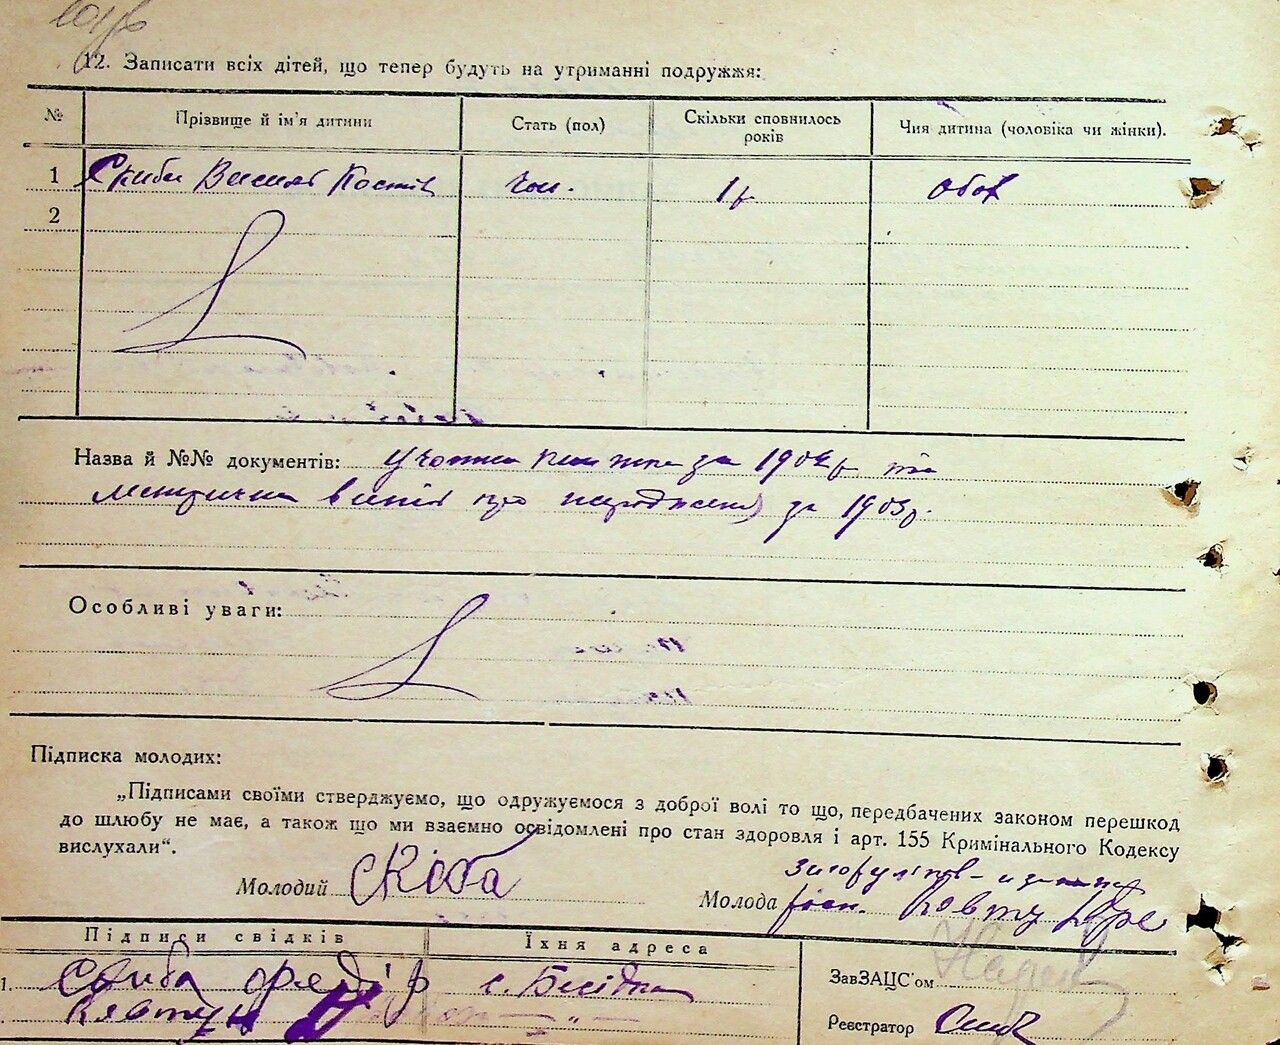 12. Записати всіх дітей, що тепер будуть на утриманні подружжя:
№ Прізвище й ім'я дитини Стать (пол) Скільки сповнилось років Чия дитина (чоловіка чи жінки).
1 Скиба Василь Костів чол. 1 р. обох
2
Назва й №№ документів: Учотна книжка за 1904 р та
метрична випис про народження за 1903 р.
Особливі уваги:
Підписка молодих:
„Підписами своїми стверджуємо, що одружуємося з доброї волі то що, передбачених законом перешкод
до шлюбу не має, а також що ми взаємно освідомлені про стан здоровля і арт. 155 Кримінального Кодексу
вислухали“.
Молодий Скіба
Молода Ковтун
Підписи свідків Їхня адреса
1. Скиба Федір с. Бесідка
Ковтун — „ —
ЗавЗАЦС'ом
Реєстратор